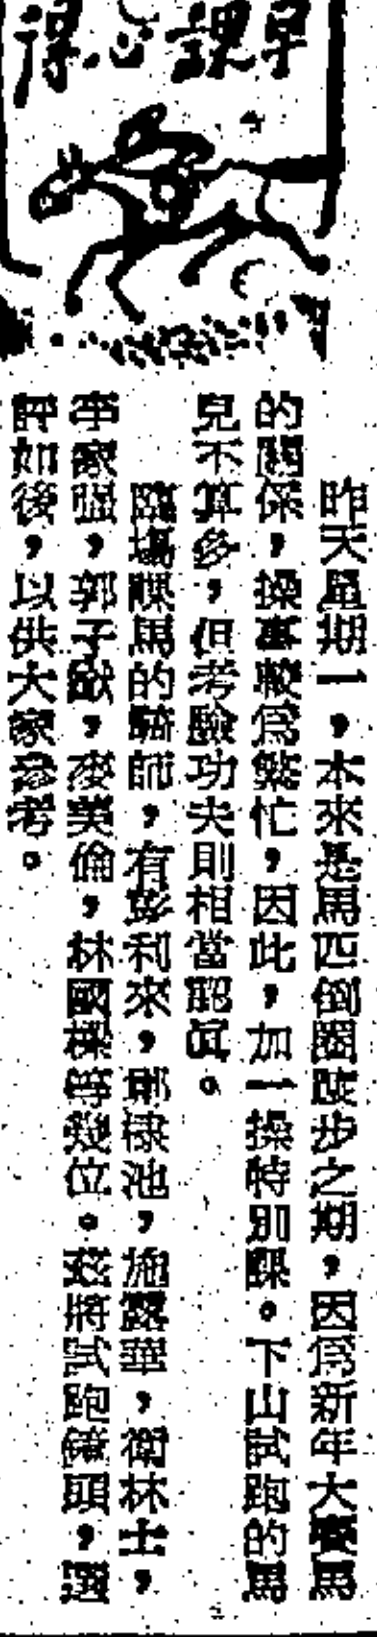 早課心得
昨天星期一，本來是馬匹倒圈踱步之期，因爲新年大賽馬
的關係，操事較爲繁忙，因此，加一操特別課。下山試跑的馬
兒不算多，但考驗功夫則相當認眞。
臨場課馬的騎師，有彭利來，鄭棣池，施露華，衛林士，
李家強，郭子猷，麥美倫，林國樑等幾位。茲將試跑鏡頭，選
評如後，以供大家參考。